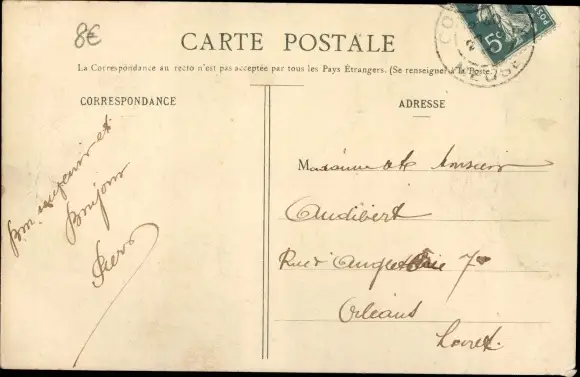 8€
CARTE POSTALE
La Correspondance au recto n'est pas acceptée par tous les Pays Étrangers. (Se renseigner à la Poste.)
CORRESPONDANCE
ADRESSE
5c
POSTES
MEUSE
Bon souvenir et
Bonjour
Madame et Monsieur
Audibert
Rue d'Angleterre 7
Orléans
Loiret.